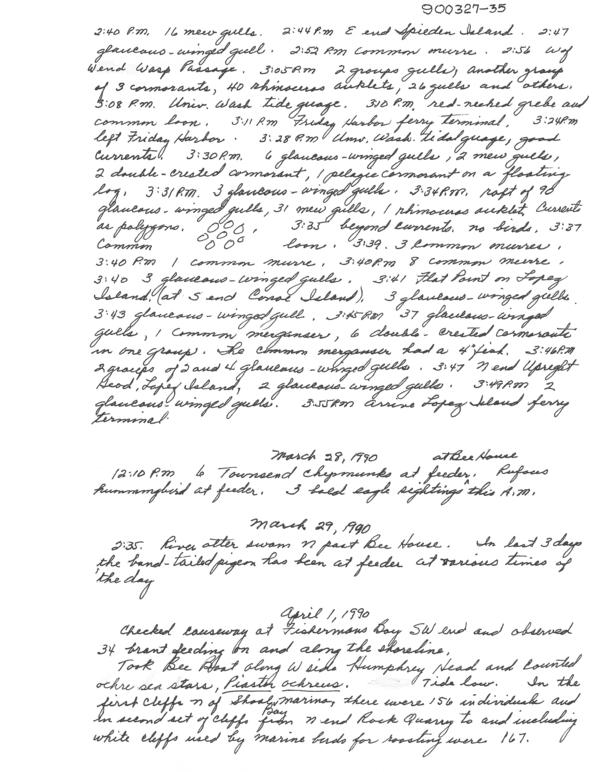 900327-35
2:40 P.M. 16 mew gulls. 2:44 P.M E end Spieden Island. 2:47
glaucous-winged gull. 2:52 P.M common murre. 2:56 W of
W end Wasp Passage. 3:05 P.M 2 groups gulls, another group
of 3 cormorants, 40 rhinoceros auklets, 26 gulls and others.
3:08 P.M. Univ. Wash tide guage. 3:10 P.M. red-necked grebe and
common loon. 3:11 P.M Friday Harbor ferry terminal. 3:24 P.M
left Friday Harbor. 3:28 P.M Univ. Wash. tidal guage, good
currents. 3:30 P.M. 6 glaucous-winged gulls, 2 mew gulls,
2 double-crested cormorant, 1 pelagic cormorant on a floating
log. 3:31 P.M. 3 glaucous-winged gulls. 3:34 P.M. raft of 90
glaucous-winged gulls, 31 mew gulls, 1 rhinoceros auklet. Currents
as polygons. 3:35 beyond currents no birds. 3:37
Common loon. 3:39. 3 common murres.
3:40 P.M 1 common murre. 3:40 P.M 8 common murre.
3:40 3 glaucous-winged gulls. 3:41 Flat Point on Lopez
Island, (at S end Canoe Island). 3 glaucous-winged gulls.
3:43 glaucous-winged gull. 3:45 P.M 37 glaucous-winged
gulls, 1 common merganser, 6 double-crested cormorants
in one group. The common merganser had a 4" fish. 3:46 P.M
2 groups of 2 and 4 glaucous-winged gulls. 3:47 N end Upright
Head, Lopez Island, 2 glaucous-winged gulls. 3:49 P.M 2
glaucous-winged gulls. 3:55 P.M arrive Lopez Island ferry
terminal.
March 28, 1990 at Bee House
12:10 P.M 6 Townsend Chipmunks at feeder. Rufous
hummingbird at feeder. 3 bald eagle sightings this A.M.
March 29, 1990
2:35. River otter swam N past Bee House. In last 3 days
the band-tailed pigeon has been at feeder at various times of
the day
April 1, 1990
Checked causeway at Fishermans Bay SW end and observed
34 brant feeding on and along the shoreline.
Took Bee Boat along W side Humphrey Head and counted
ochre sea stars, Piaster ochreus. Tide low. In the
first cliffs N of Shoal Bay marina, there were 156 individuals and
in second set of cliffs from N end Rock Quarry to and including
white cliffs used by marine birds for roosting were 167.